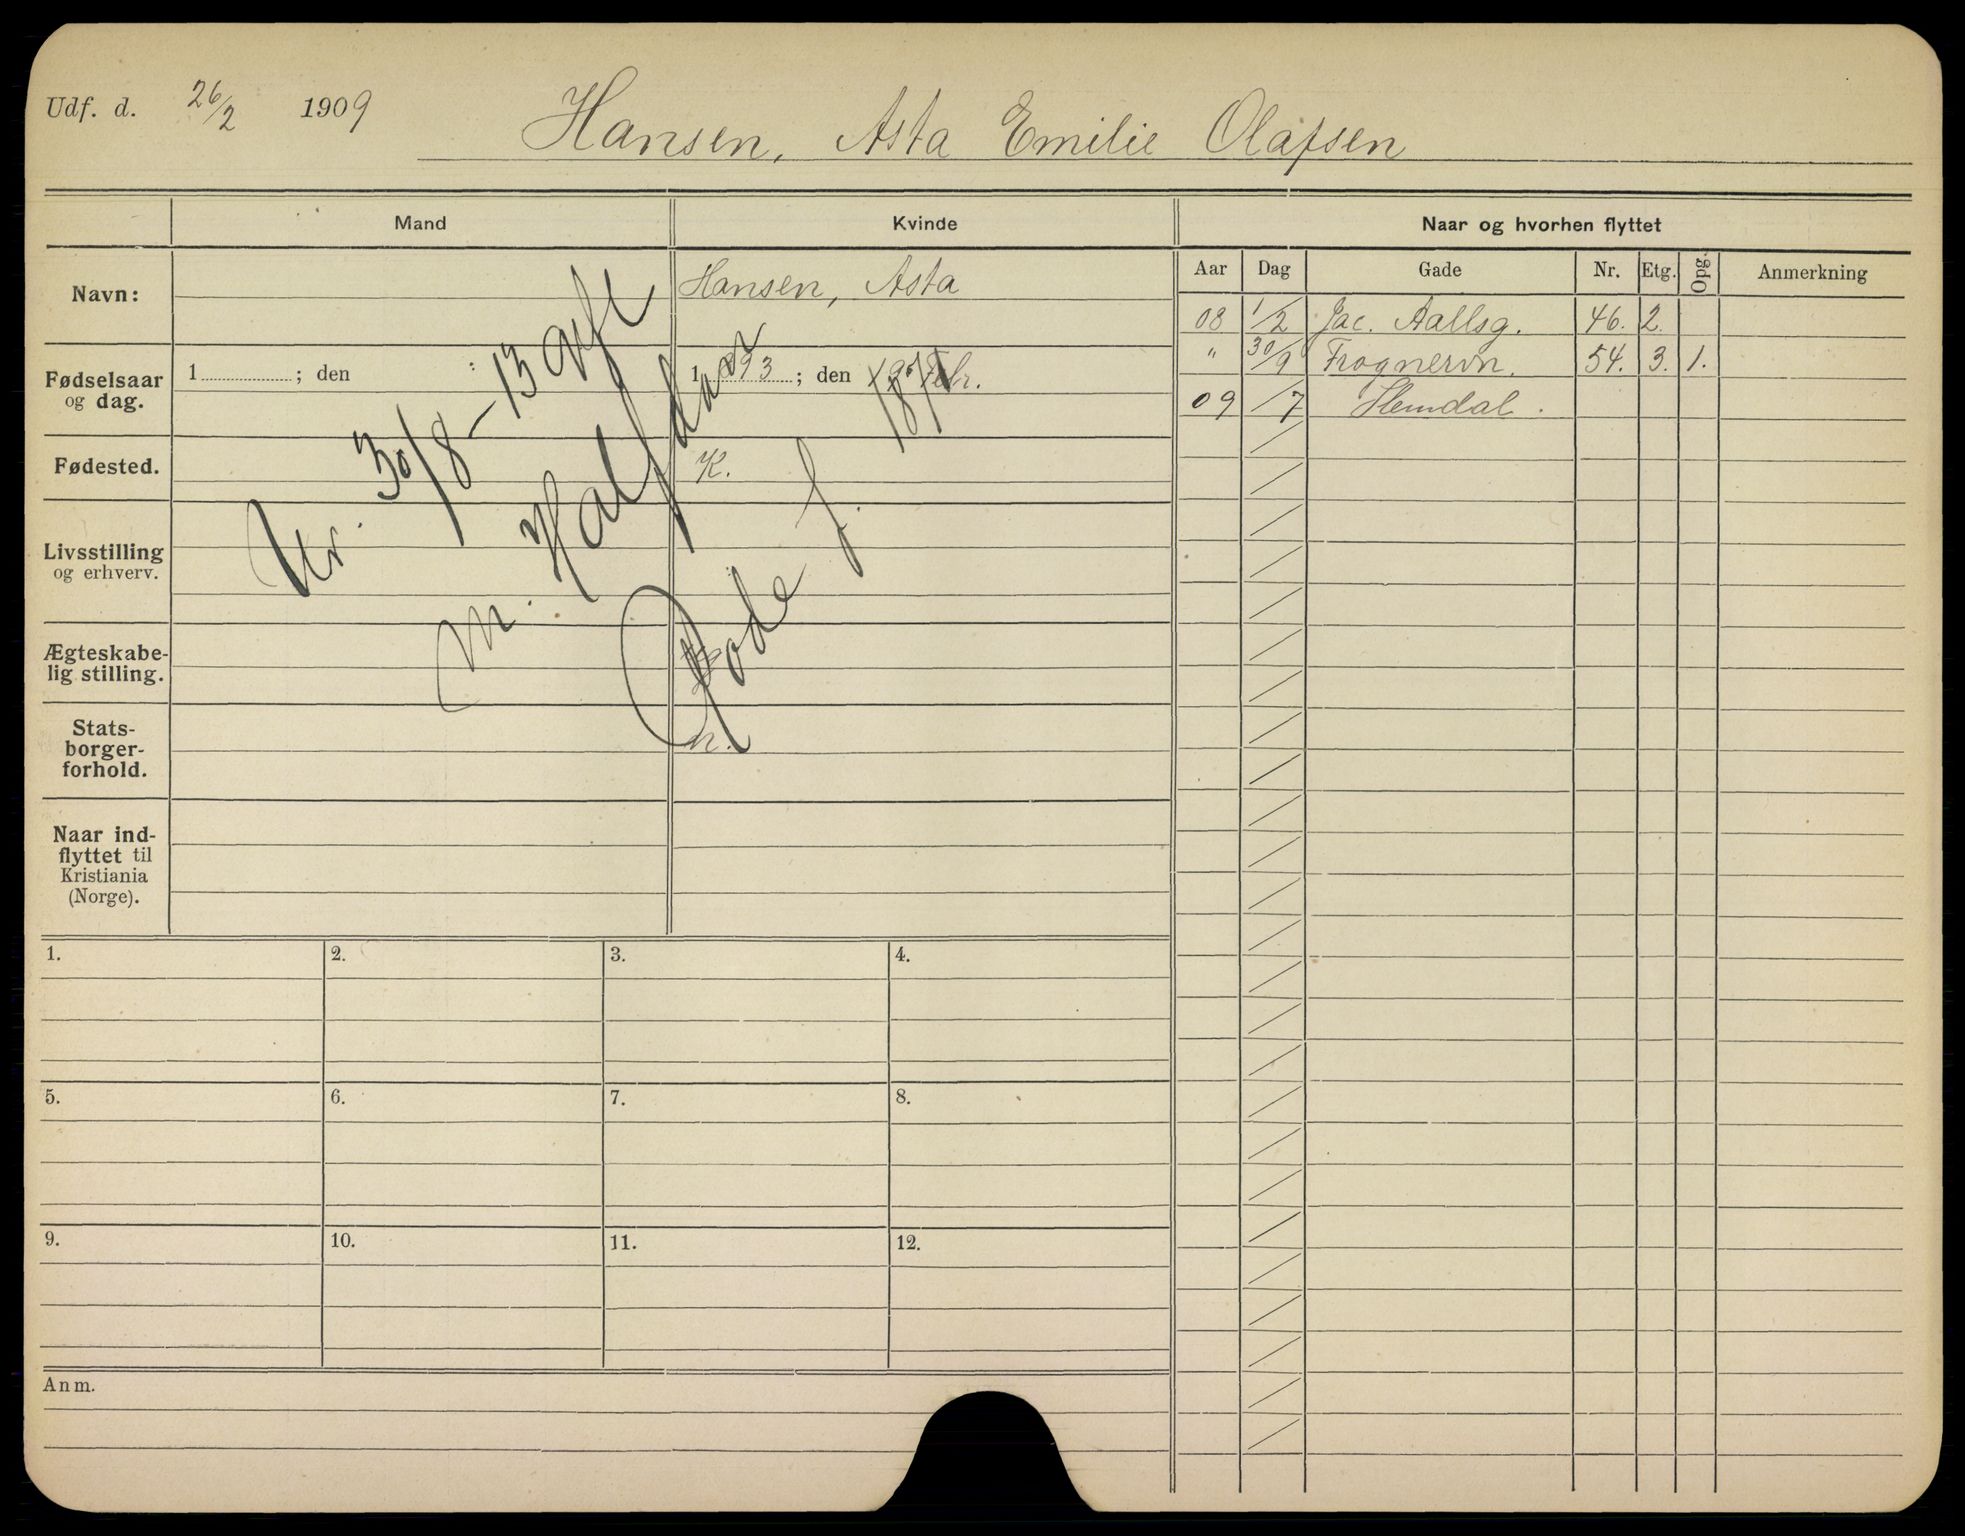 Udf. d. 26/2 1909
Hansen, Asta Emilie Olafsen
Mand
Kvinde
Naar og hvorhen flyttet
Navn:
Hansen, Asta
Fødselsaar
og dag.
1 ; den
1 893 ; den Febr.
Fødested.
K.
Livsstilling
og erhverv.
Ægteskabe-
lig stilling.
Stats-
borger-
forhold.
n.
Naar ind-
flyttet til
Kristiania
(Norge).
30/8-13
m. Halfdan
Rode f. 1871
Aar Dag Gade Nr. Etg. Opg. Anmerkning
08 1/2 Jac. Aallsg. 46. 2.
" 30/9 Frognervn. 54. 3. 1.
09 /7 Slemdal.
1. 2. 3. 4.
5. 6. 7. 8.
9. 10. 11. 12.
Anm.